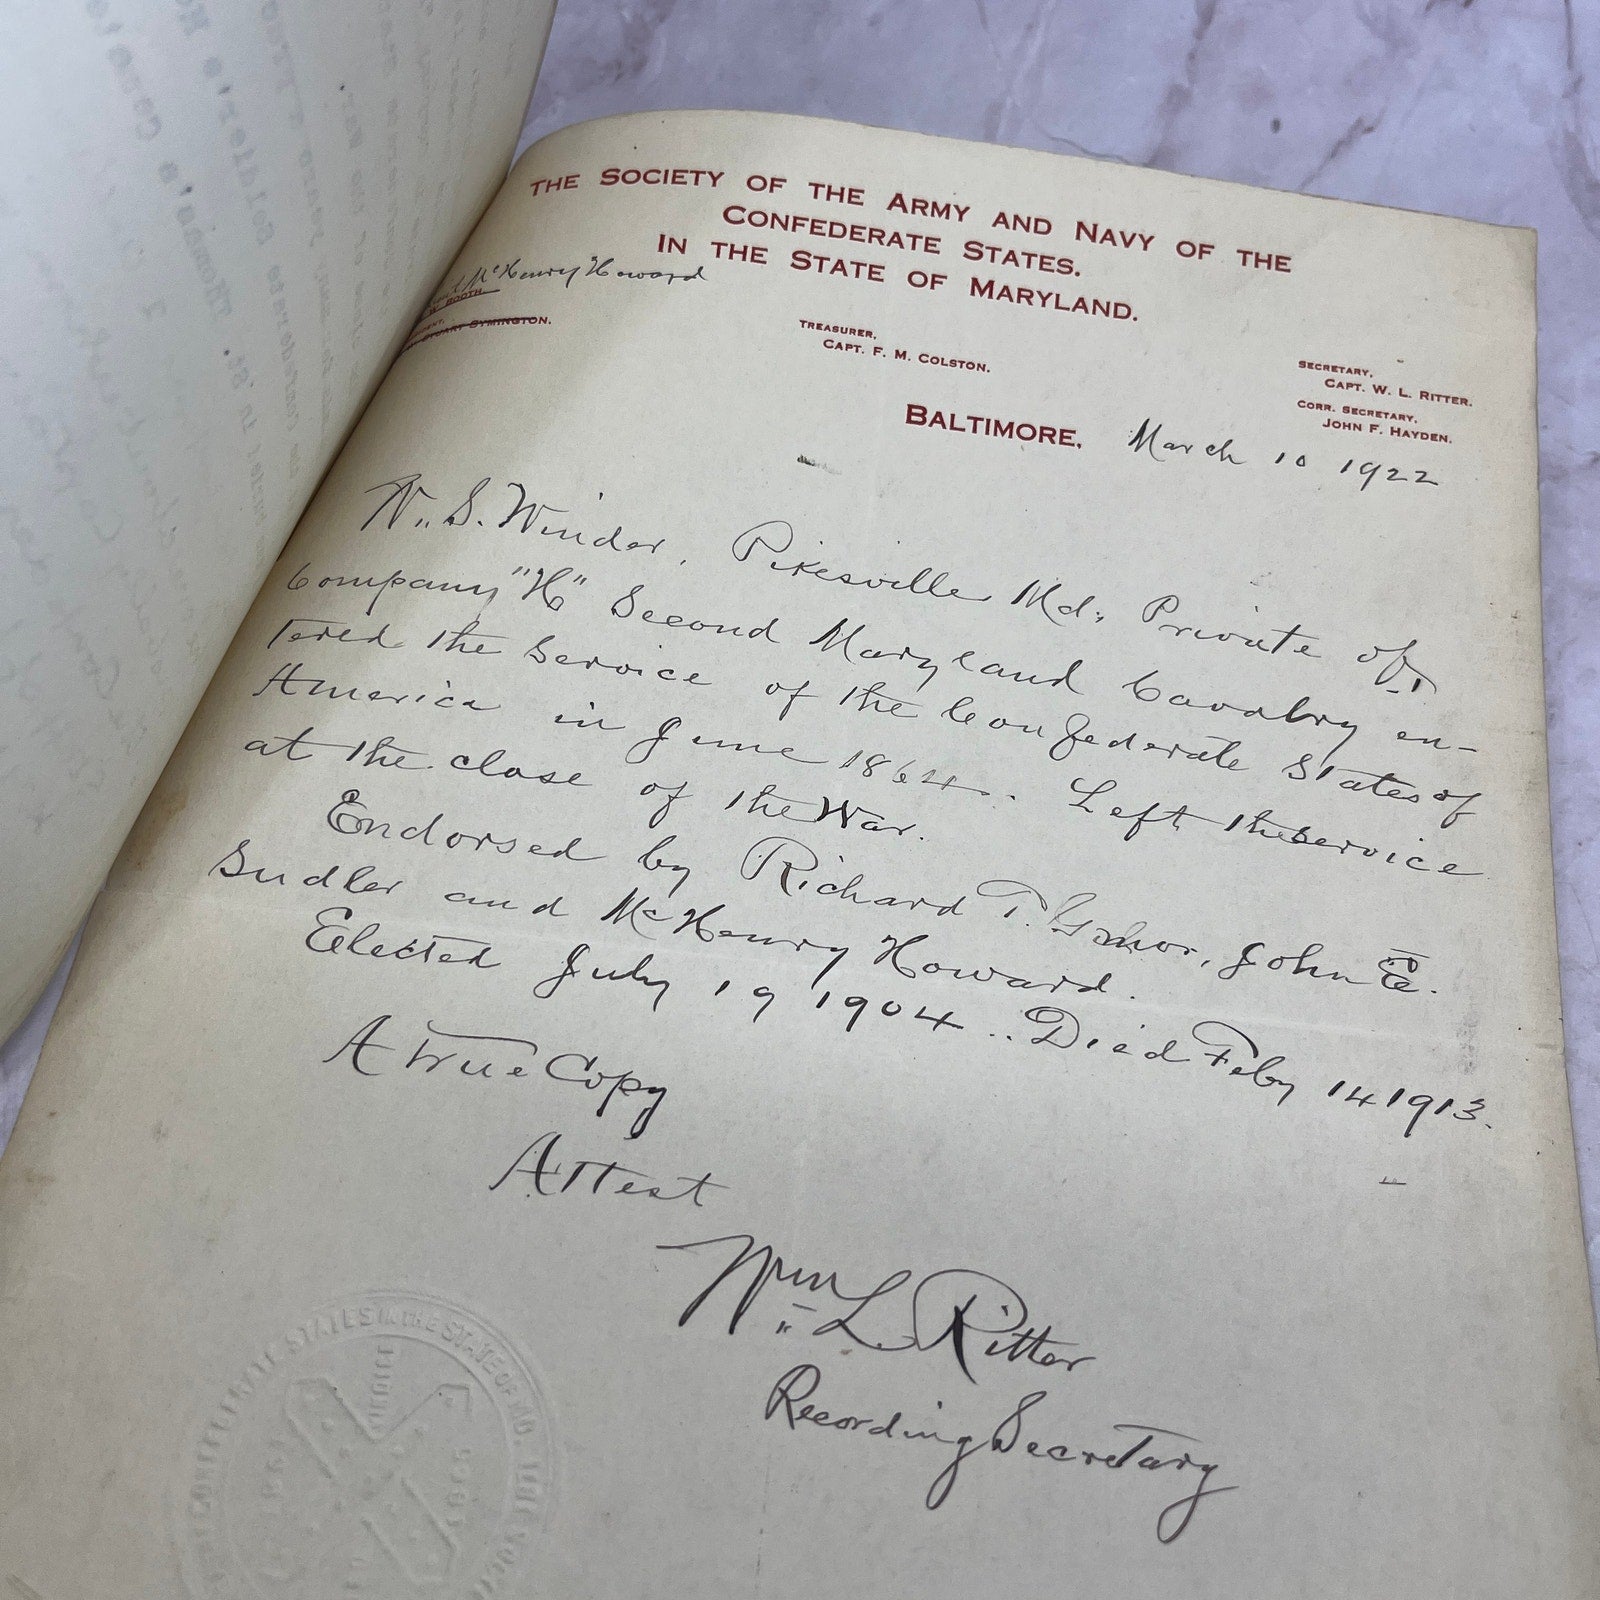 THE SOCIETY OF THE ARMY AND NAVY OF THE
CONFEDERATE STATES.
IN THE STATE OF MARYLAND.
McHenry Howard
BOOTH.
STUART SYMINGTON.
TREASURER,
CAPT. F. M. COLSTON.
SECRETARY,
CAPT. W. L. RITTER.
CORR. SECRETARY,
JOHN F. HAYDEN.
BALTIMORE, March 10 1922
W. S. Winder, Pikesville Md, Private of
Company "H" Second Maryland Cavalry en-
tered the service of the Confederate States of
America in June 1864. Left the service
at the close of the War.
Endorsed by Richard T. John E.
Sudler and McHenry Howard.
Elected July 19 1904. Died Feby 14 1913.
A True Copy
Attest
Wm L. Ritter
Recording Secretary
CONFEDERATE STATES IN THE STATE OF MD.